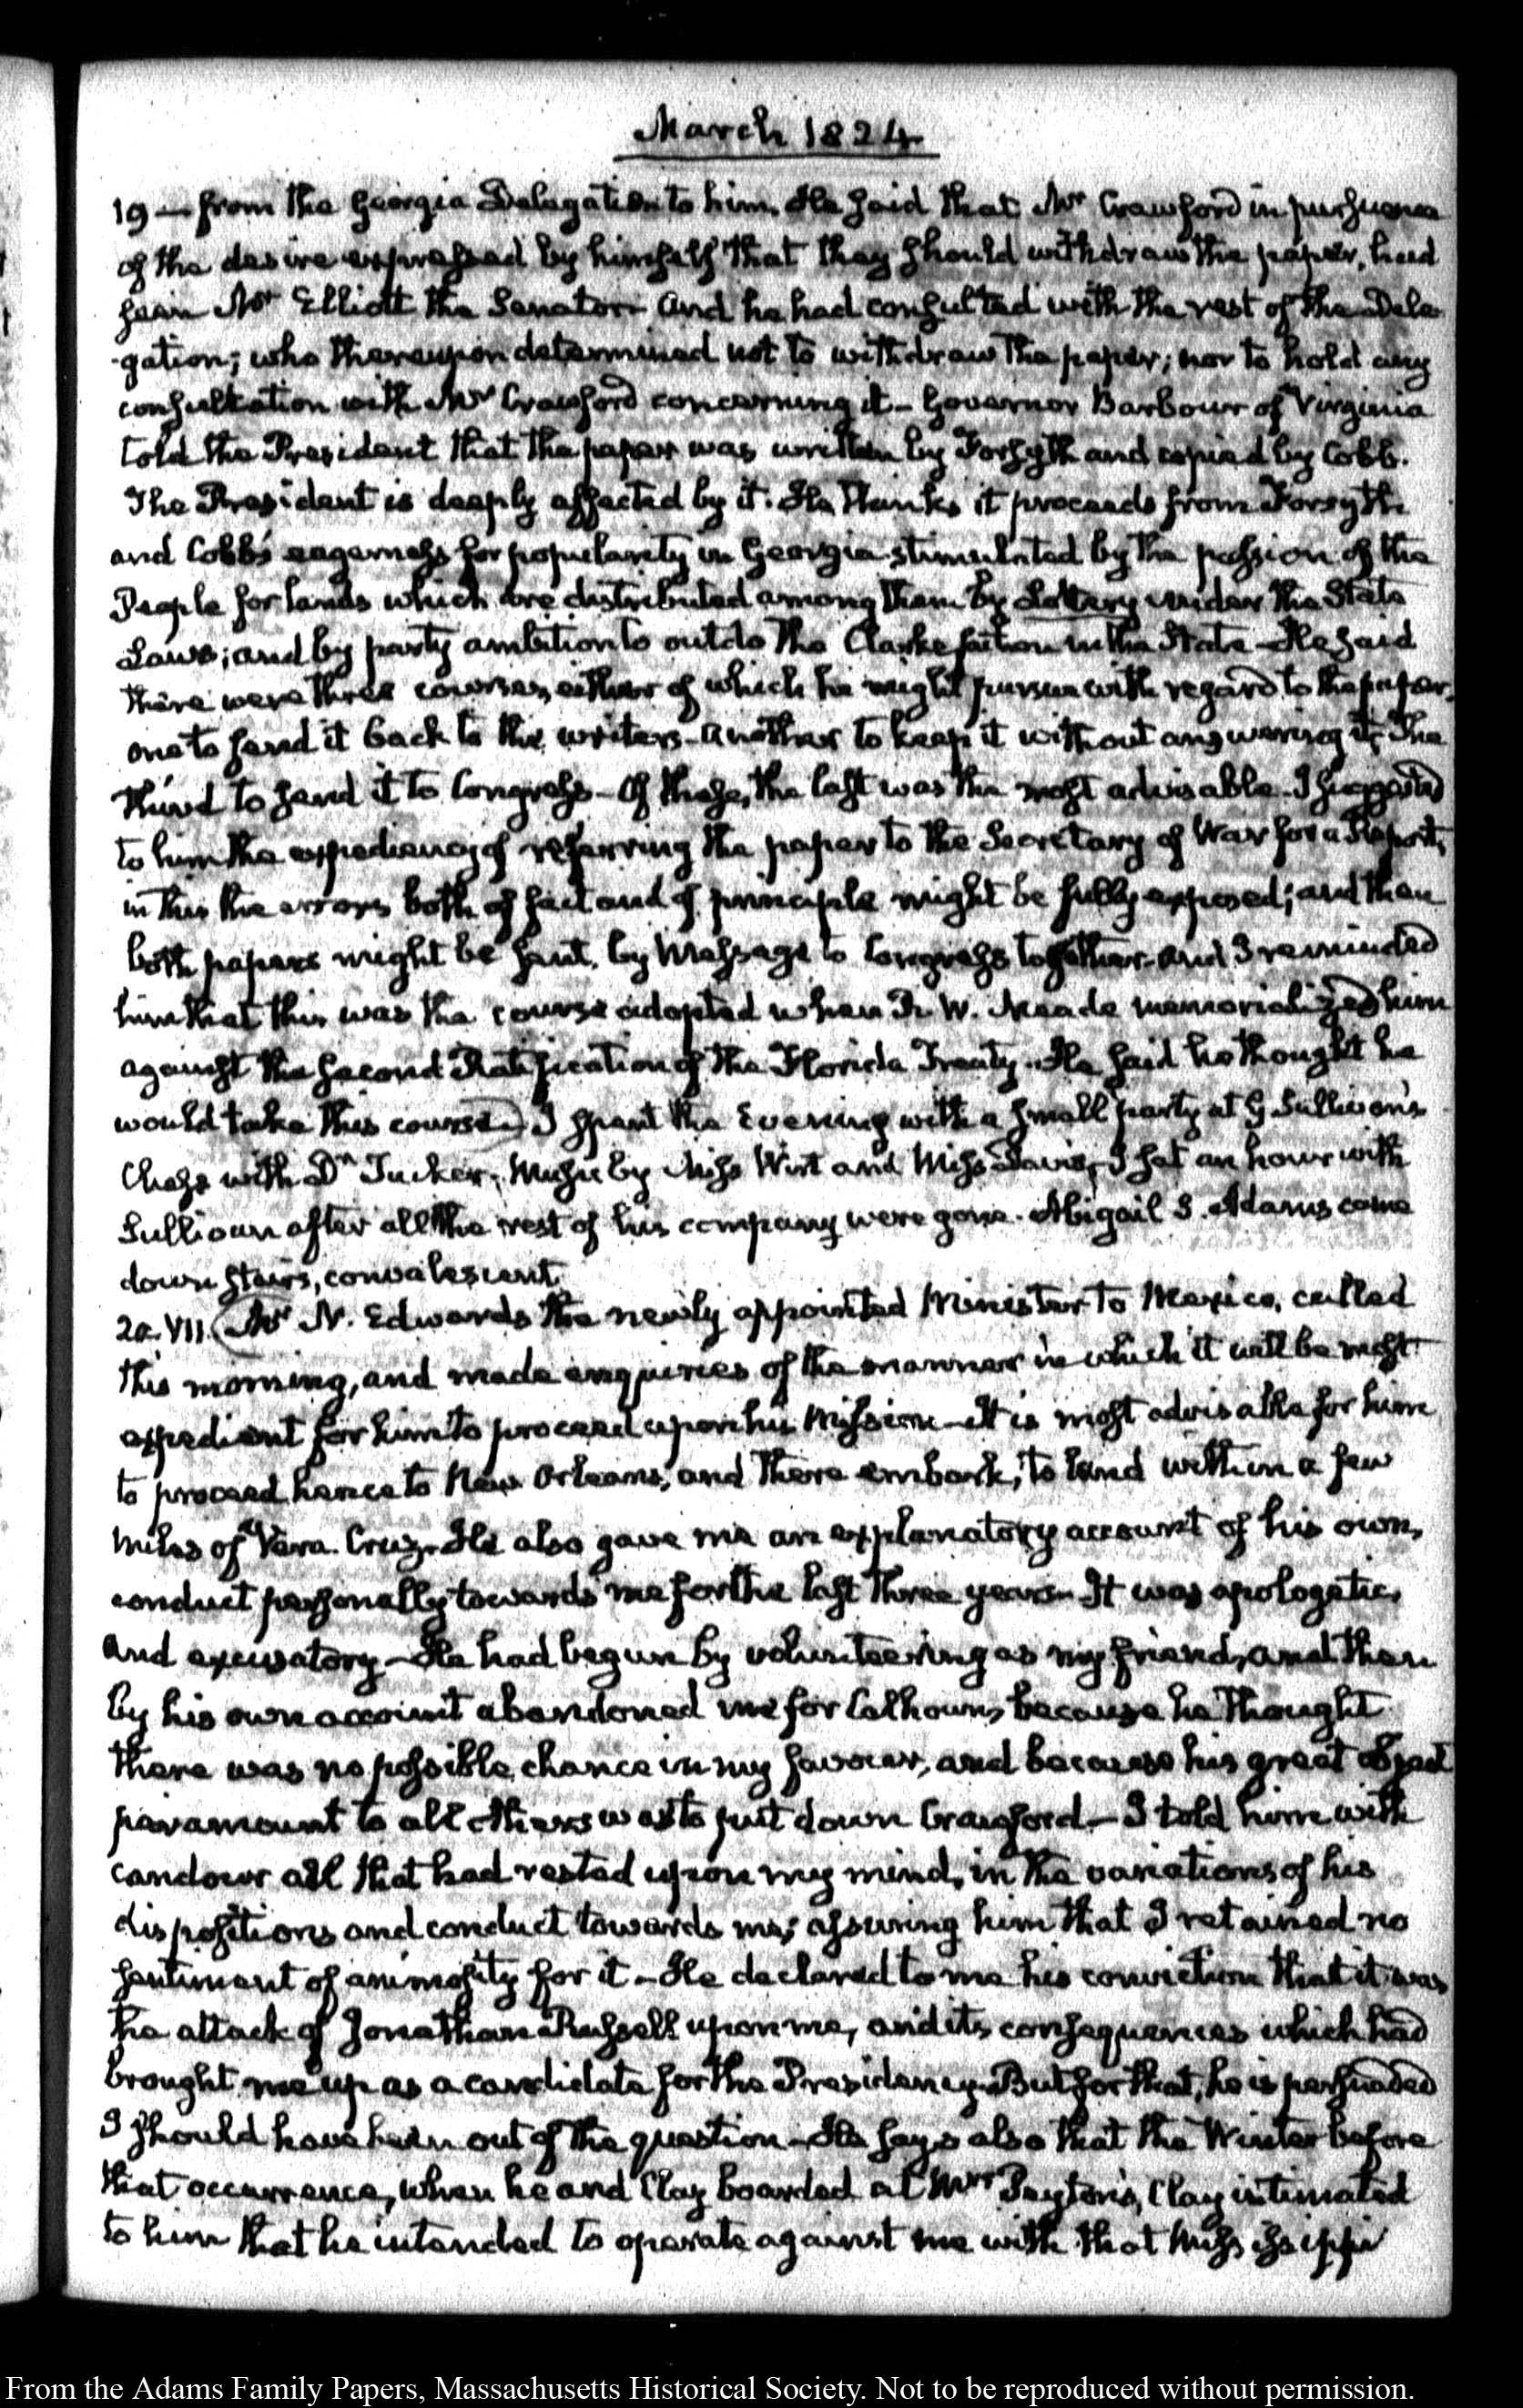 March 1824
19 — from the Georgia Delegation to him. He said that Mr Crawford in pursuance
of the desire expressed by himself that they should withdraw the paper, had
seen Mr Elliott the Senator — and he had consulted with the rest of the Dele
-gation; who thereupon determined not to withdraw the paper; nor to hold any
consultation with Mr Crawford concerning it — Governor Barbour of Virginia
told the President that the paper was written by Forsyth and copied by Cobb.
The President is deeply affected by it. He thinks it proceeds from Forsyth
and Cobb's eagerness for popularity in Georgia stimulated by the passion of the
People for lands which are distributed among them by Lottery under the State
Laws; and by party ambition to outdo the Clarke faction in the State — He said
there were three courses, either of which he might pursue with regard to the paper,
one to send it back to the writers — another to keep it without answering it, The
third to send it to Congress — Of these, the last was the most advisable — I suggested
to him the expediency of referring the paper to the Secretary of War for a Report,
in this the errors both of fact and of principle might be fully exposed; and then
both papers might be sent, by Message to Congress together — and I reminded
him that this was the course adopted when R. W. Meade memorialized him
against the second Ratification of the Florida Treaty. He said he thought he
would take this course — I spent the Evening with a small party at G Sullivan's
Chess with Dr Tucker, Music by Miss Wirt and Miss Davis, I sat an hour with
Sullivan after all the rest of his company were gone. Abigail S. Adams came
down stairs, convalescent
20. VII. Mr N. Edwards the newly appointed Minister to Mexico, called
this morning, and made enquiries of the manner in which it will be most
expedient for him to proceed upon his Mission — It is most advisable for him
to proceed hence to New Orleans, and there embark, to land within a few
miles of Vera Cruz. He also gave me an explanatory account of his own
conduct personally towards me for the last three years — It was apologetic,
and excusatory — He had begun by volunteering as my friend, and then
by his own account abandoned me for Calhoun, because he thought
there was no possible chance in my favour, and because his great object
paramount to all others was to put down Crawford — I told him with
candour all that had rested upon my mind, in the variations of his
dispositions and conduct towards me; assuring him that I retained no
sentiment of animosity for it — He declared to me his conviction that it was
the attack of Jonathan Russell upon me, and its consequences which had
brought me up as a candidate for the Presidency — But for that, he is persuaded
I should have been out of the question — He says also that the Winter before
that occurrence, when he and Clay boarded at Mrs Peyton's, Clay intimated
to him that he intended to operate against me with that Mississippi
From the Adams Family Papers, Massachusetts Historical Society. Not to be reproduced without permission.